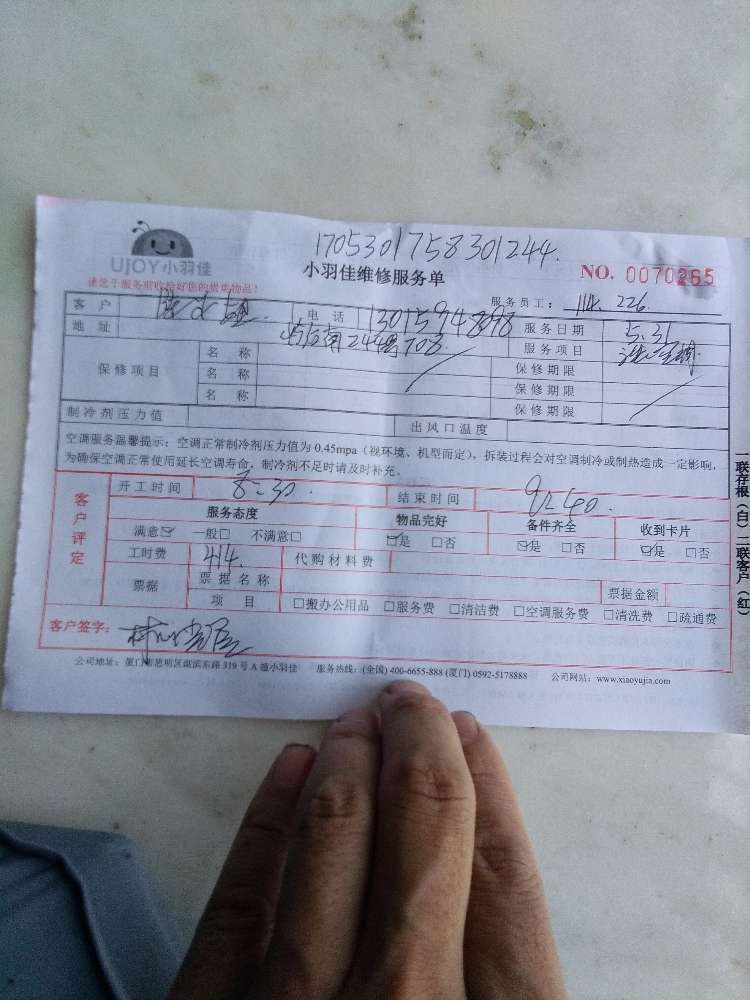 1705301758301244.
UJOY小羽佳
小羽佳维修服务单
NO. 0070265
请您于服务前收拾好您的贵重物品!
服务员工: 114. 226.
客户 电话 13015948898 服务日期 5.31
地址 244号708 服务项目
保修项目 名称 保修期限
名称 保修期限
名称 保修期限
制冷剂压力值 出风口温度
空调服务温馨提示:空调正常制冷剂压力值为0.45mpa(视环境、机型而定),拆装过程会对空调制冷或制热造成一定影响,
为确保空调正常使用延长空调寿命,制冷剂不足时请及时补充。
客户评定
开工时间 8:30. 结束时间 9:40.
服务态度 物品完好 备件齐全 收到卡片
满意☑ 一般□ 不满意□ ☑是 □否 ☑是 □否 ☑是 □否
工时费 414. 代购材料费
票据 票据名称 票据金额
项目 □搬办公用品 □服务费 □清洁费 □空调服务费 □清洗费 □疏通费
客户签字:
公司地址:厦门市思明区湖滨东路319号A道小羽佳 服务热线:(全国)400-6655-888(厦门)0592-5178888 公司网站:www.xiaoyujia.com
一联存根(白)二联客户(红)